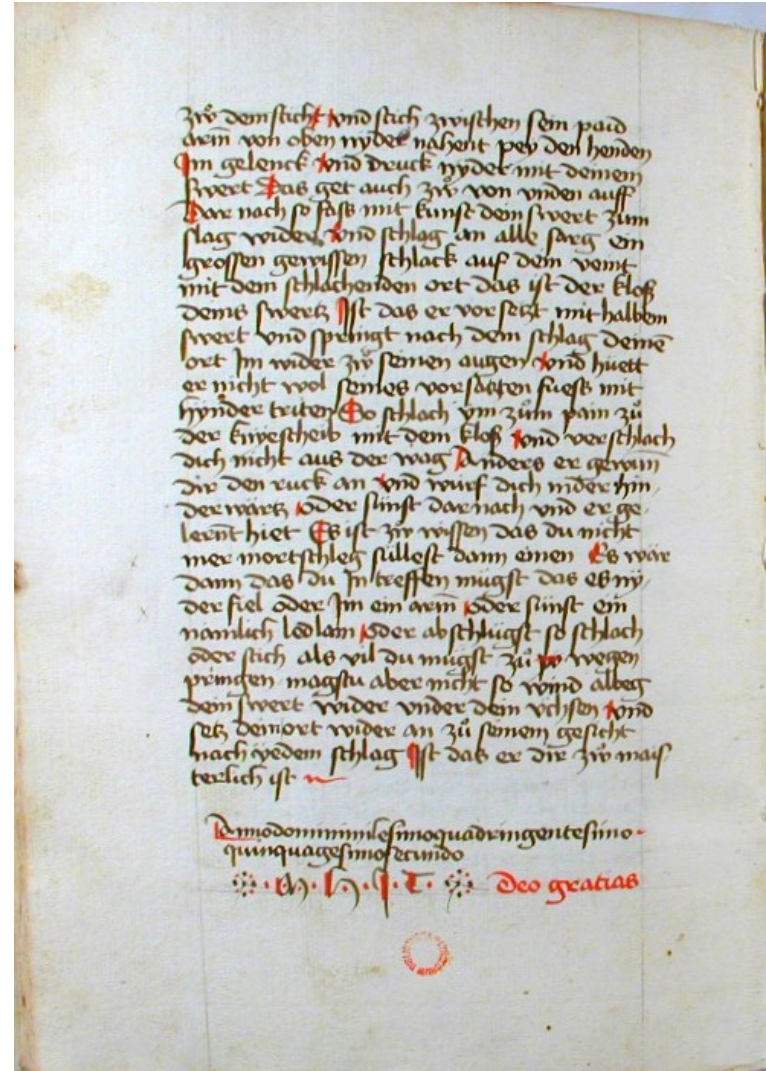 zw dem stich vnd stich zwischen sein paid
arm von oben nyder nahent pey den henden
Im gelenck vnd druck nyder mit deinem
swert Das get auch zw von vnden auff
Dar nach so fass mit kunst dein swert zum
slag wider vnd schlag an alle sarg ein
grossen gewissen schlack auf dem veint
mit dem schlachenden ort das ist der kloß
deins swertz Ist das er vor setzt mit halbem
swert vnd springt nach dem schlag deinē
ort Im wider zw seinen augen vnd huett
er nicht wol seines vor sasten fuess mit
hynder triten So schlach ym zum pain zu
der knyescheib mit dem kloß vnd verschlach
dich nicht aus der wag Anders er gewinn
dir den ruck an vnd wurf dich nider hin,
der wartz oder sunst dar nach vnd er ge,
lernt hiet Es ist zw wissen das du nicht
mer mortschleg sullest dann einen Es wär
dann das du In treffen mugst das es ny,
der fiel oder Im ein arm oder sunst ein
namlich lidlam oder abschlugst so schlach
oder stich als vil du mugst zu wegen
pringen magstu aber nicht so wind albeg
dein swert wider vnder dein vchsen vnd
setz dein ort wider an zu seinem gesicht
nach yedem schlag Ist das er dir zw mais,
terlich ist
Anno domini milesimo quadringentesimo
quinquagesimo secundo
Deo gratias